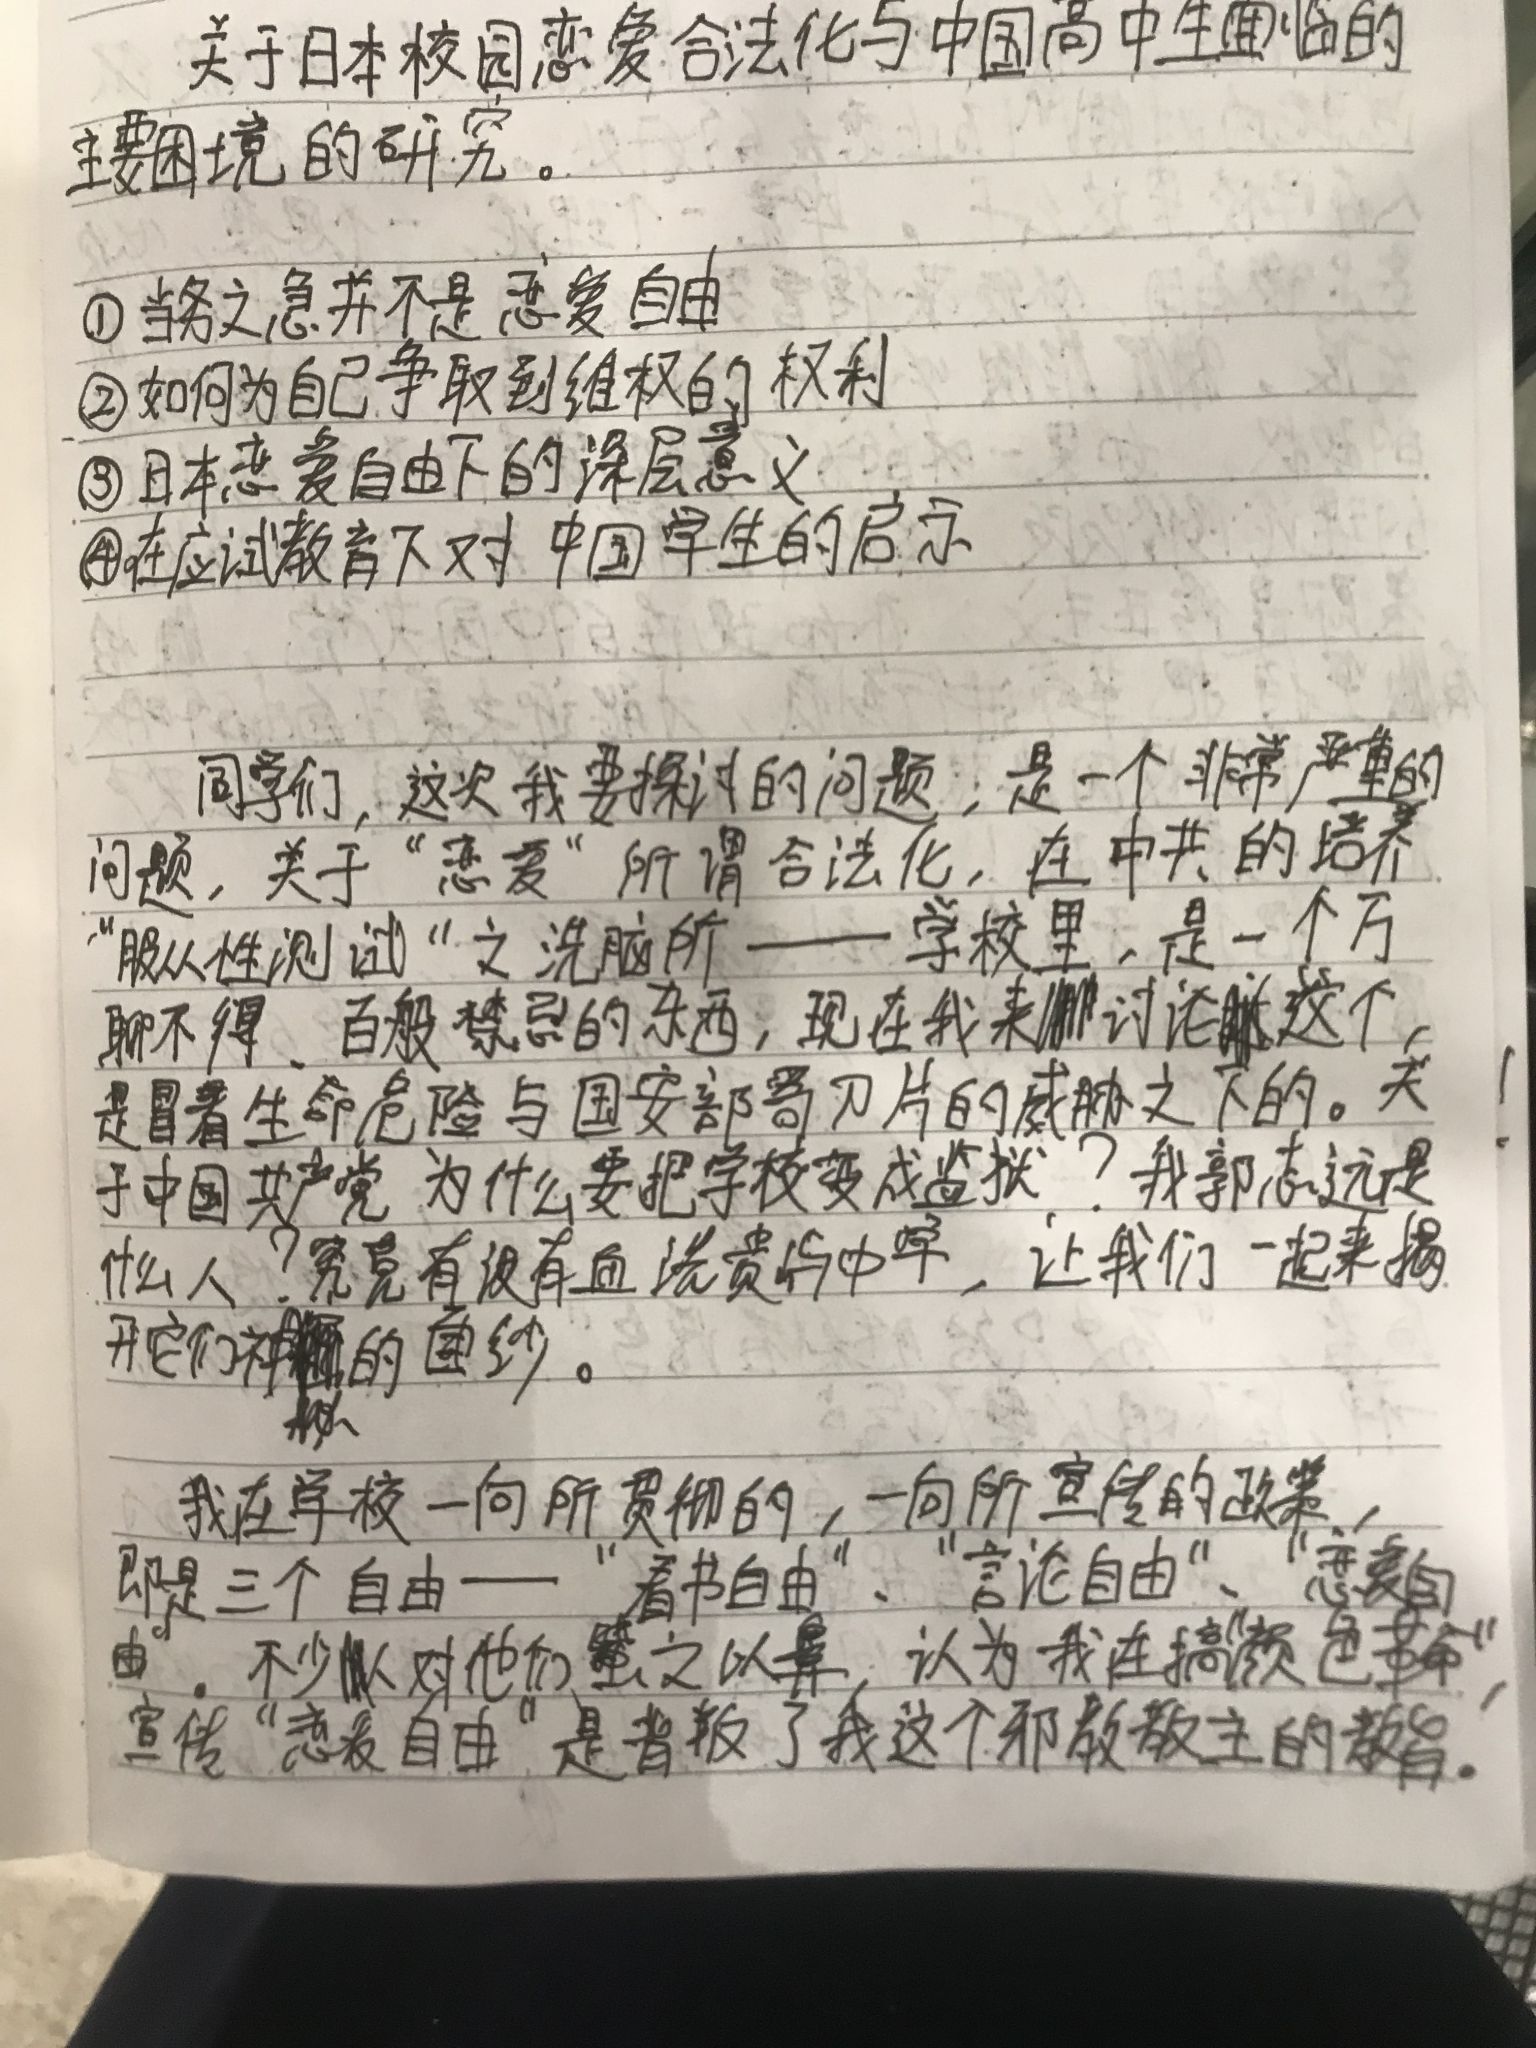 关于日本校园恋爱合法化与中国高中生面临的
主要困境的研究。
①当务之急并不是恋爱自由
②如何为自己争取到维权的权利
③日本恋爱自由下的深层意义
④在应试教育下对中国学生的启示
同学们，这次我要探讨的问题，是一个非常严重的
问题，关于“恋爱“所谓合法化，在中共的培养
“服从性测试“之洗脑所——学校里，是一个万
聊不得、百般禁忌的东西，现在我来讨论这个，
是冒着生命危险与国安部寄刀片的威胁之下的。关
于中国共产党为什么要把学校变成监狱？我郭志远是
什么人？究竟有没有血洗贵屿中学，让我们一起来揭
开它们神秘的面纱。
我在学校一向所贯彻的，一向所宣传的政策，
即是三个自由——“看书自由“、“言论自由“、“恋爱自
由。不少人对他们嗤之以鼻，认为我在搞“颜色革命“，
宣传“恋爱自由“是背叛了我这个邪教教主的教旨。